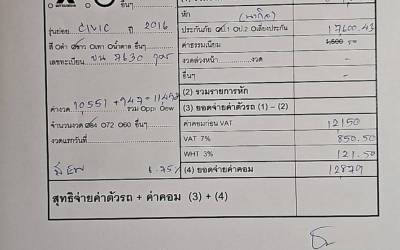 รุ่นย่อย CIVIC ปี 2016
หัก
สี O ดำ O ขาว O เทา O น้ำตาล อื่นๆ
ประกันภัย ป.1 O ป.2 O เลี่ยงประกัน 17600.43
เลขทะเบียน ขน 7630
ค่าธรรมเนียม 1,500 50
งวดล่วงหน้า งวด -
อื่นๆ
(2) รวมรายการหัก
ค่างวด 10,551 + 947 = 11,498 รวม Oppi Oew
(3) ยอดจ่ายค่าตัวรถ (1) - (2)
จำนวนงวด O84 O72 O60 อื่นๆ
ค่าคอมก่อน VAT 12150
งวดแรกวันที่
VAT 7% 850.50
WHT 3% 121.50
6.75%
(4) ยอดจ่ายค่าคอม 12879
สุทธิจ่ายค่าตัวรถ + ค่าคอม (3) + (4)